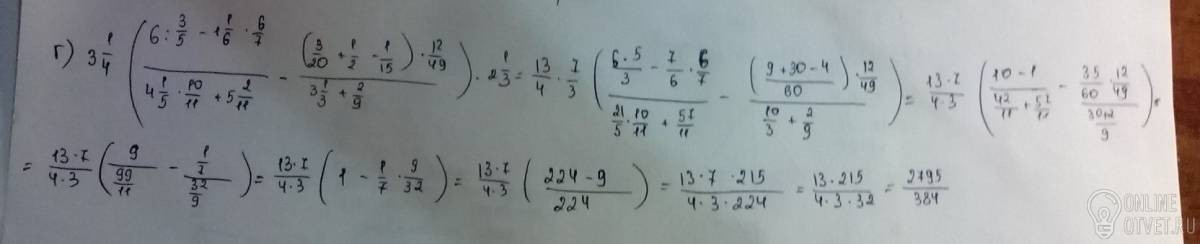 г) 3 1/4 ( (6 : 3/5 - 1 1/6 · 6/7) / (4 1/5 · 10/11 + 5 2/11) - ((3/20 + 1/2 - 1/15) · 12/49) / (3 1/3 + 2/9) ) · 2 1/3 = 13/4 · 7/3 ( (6·5/3 - 7/6 · 6/7) / (21/5 · 10/11 + 57/11) - ((9+30-4)/60) · 12/49) / (10/3 + 2/9) ) = 13·7/4·3 ( (10-1) / (42/11 + 57/11) - (35/60 · 12/49) / ((30+2)/9) ) =
= 13·7/4·3 ( 9 / (99/11) - (1/7) / (32/9) ) = 13·7/4·3 ( 1 - 1/7 · 9/32 ) = 13·7/4·3 ( (224-9)/224 ) = 13·7·215/4·3·224 = 13·215/4·3·32 = 2795/384
ONLINE
OTVET.RU